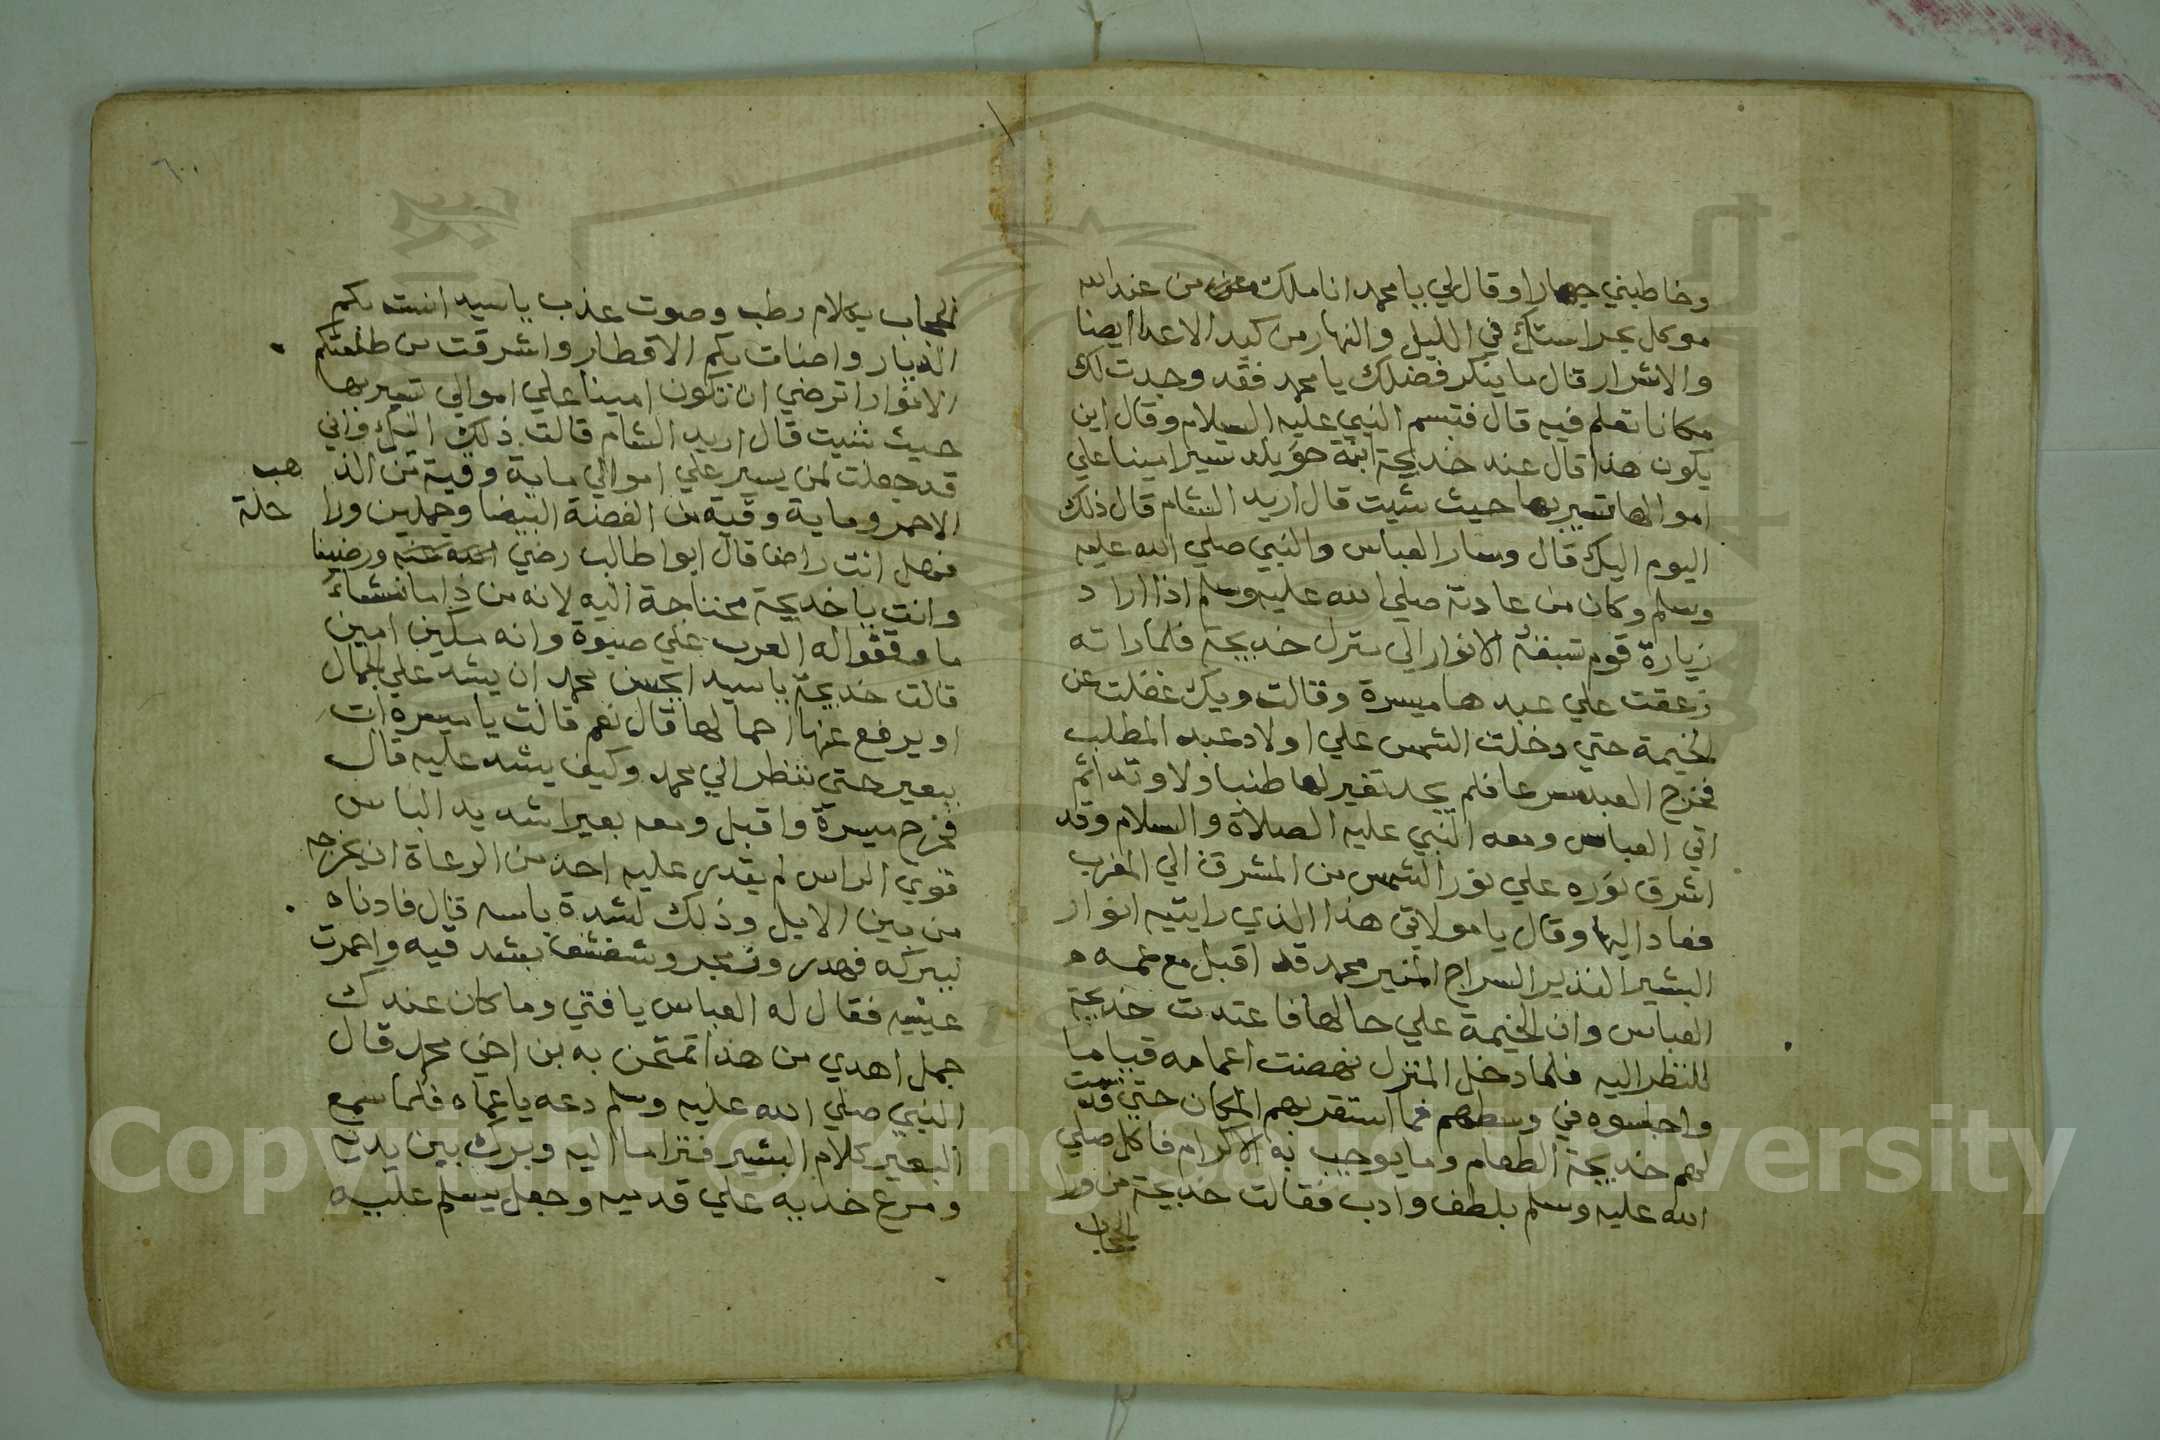 وخاطبني جهارا وقال لي يا محمد انا ملك من عند الله
موكل بحراستك في الليل والنهار من كيد الاعدا ايضا
والاشرار قال ما ينكر فضلك يا محمد فقد وجدت لك
مكانا تعلم فيه قال فتبسم النبي عليه السلام وقال اين
يكون هذا قال عند خديجة ابنة خويلد تسير امينا علي
اموالها تسير بها حيث شيت قال اريد الشام قال ذلك
اليوم اليك قال وسار العباس والنبي صلي الله عليه
وسلم وكان من عادته صلي الله عليه وسلم اذا اراد
زيارة قوم تسبقه الانوار الي منزل خديجة فلما راته
زعقت علي عبدها ميسرة وقالت ويك غفلت عن
الخيمة حتي دخلت الشمس علي اولاد عبد المطلب
فخرج العبد مسرعا فلم يجد تغير لها طنبا ولا وتد اثم
اتي العباس ومعه النبي عليه الصلاة والسلام وقد
اشرق نوره علي نور الشمس من المشرق الي المغرب
فعاد اليها وقال يا مولاتي هذا الذي رايتيه انوار
البشير النذير السراج المنير محمد قد اقبل مع عمه
العباس وان الخيمة علي حالها فاعتدت خديجة
للنظر اليه فلما دخل المنزل نهضت اعمامه قياما
واجلسوه في وسطهم فما استقر بهم المكان حتي قدمت
لهم خديجة الطعام وما يوجب به الاكرام فاكل صلي
الله عليه وسلم بلطف وادب فقالت خديجة من ورا
الحجاب
الحجاب بكلام رطب وصوت عذب يا سيد انست بكم
الديار واضات بكم الاقطار واشرقت من طلعتكم
الانوار اترضي ان تكون امينا علي اموالي تسير بها
حيث شيت قال اريد الشام قالت ذلك اليك واني
قد جعلت لمن يسير علي اموالي ماية وقية من الذهب
الاحمر وماية وقية من الفضة البيضا وجملين وراحلة
فهل انت راضا قال ابوا طالب رضي الله عنه ورضينا
وانت يا خديجة محتاجة اليه لانه من
ما العرب علي صبوة وانه مسكين امين
قالت خديجة يا سيد ايحسن محمد ان يشد علي الجمال
او يرفع عنها احمالها قال نعم قالت يا ميسره ات
ببعير حتي ننظر الي محمد وكيف يشد عليه قال
فخرج ميسرة واقبل ومعه بعيرا شديد الباس
قوي الراس لم يقدر عليه احد من الرعاة ان يخرجه
من بين الابل وذلك لشدة باسه قال فادناه
ليبركه فهدر بشدقيه واحمرت
عينيه فقال له العباس يا فتي وما كان عندك
جمل اهدي من هذا تمتحن به بن اخي محمد قال
النبي صلي الله عليه وسلم دعه يا عماه فلما سمع
البعير كلام البشير فتراما اليه وبرك بين يديه
ومرغ خديه علي قدميه وجعل يسلم عليه